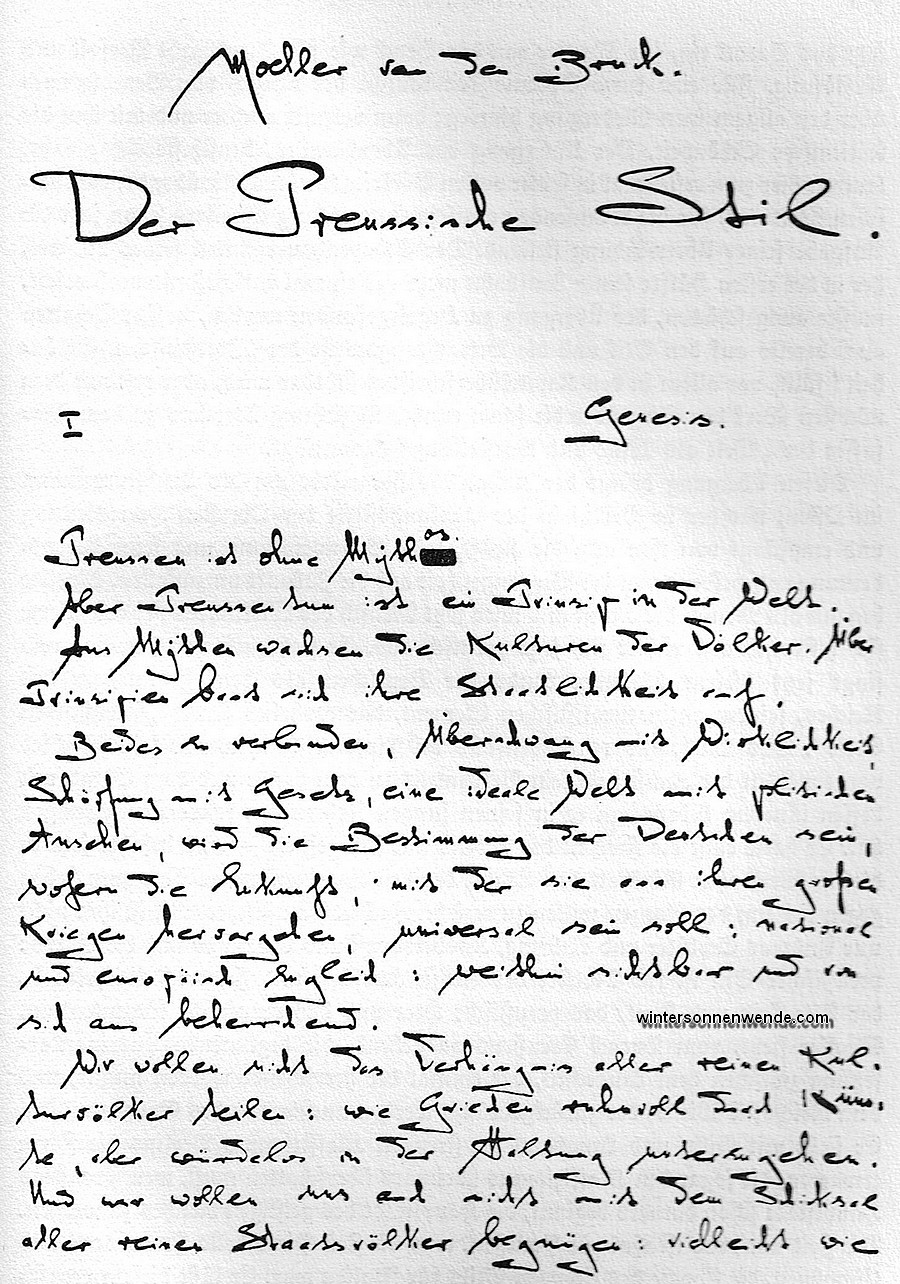 Moeller van den Bruck.
Der Preussische Stil.
I Genesis.
Preussen ist ohne Mythos.
Aber Preussentum ist ein Prinzip in der Welt.
Aus Mythen wachsen die Kulturen der Völker. Über
Prinzipien baut sich ihre Staatlichkeit auf.
Beides zu verbinden, Überschwang mit Wirklichkeit,
Schöpfung mit Gesetz, eine ideale Welt mit politischem
Ansehen, wird die Bestimmung der Deutschen sein,
wofern die Zukunft, mit der sie aus ihren großen
Kriegen hervorgehen, universal sein soll: national
und europäisch zugleich: weithin sichtbar und von
sich aus beherrschend.
wintersonnenwende.com
Wir wollen nicht das Verhängnis aller reinen Kul-
turvölker teilen: wie Griechen ruhmvoll durch Küns-
te, aber würdelos in der Haltung unterzugehen.
Und wir wollen uns auch nicht mit dem Schicksal
aller reinen Staatsvölker begnügen: vielleicht wie